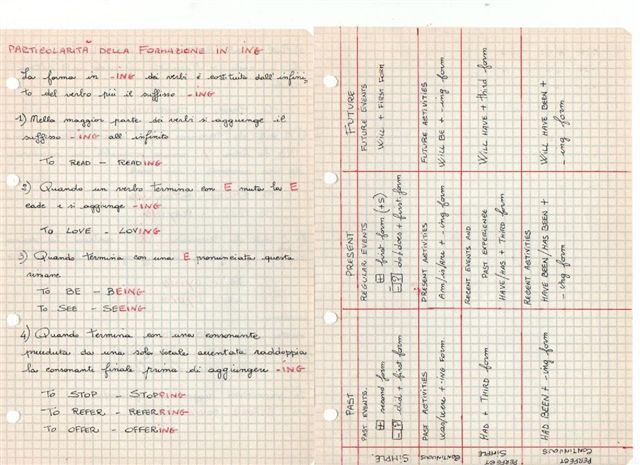 PARTICOLARITÀ DELLA FORMAZIONE IN ING
La forma in -ING dei verbi è costituita dall'infini-
to del verbo più il suffisso -ING
1) Nella maggior parte dei verbi si aggiunge il
suffisso -ING all'infinito
TO READ - READING
2) Quando un verbo termina con E muta la E
cade e si aggiunge -ING
TO LOVE - LOVING
3) Quando termina con una E pronunciata questa
rimane
TO BE - BEING
TO SEE - SEEING
4) Quando termina con una consonante
preceduta da una sola vocale accentata raddoppia
la consonante finale prima di aggiungere -ING
TO STOP - STOPPING
TO REFER - REFERRING
TO OFFER - OFFERING
PAST PRESENT FUTURE
SIMPLE
PAST EVENTS
+ second form
-? did + first form
REGULAR EVENTS
+ first form (+S)
-? do/does + first form
FUTURE EVENTS
WILL + FIRST FORM
CONTINUOUS
PAST ACTIVITIES
was/were + -ING FORM
PRESENT ACTIVITIES
Am/is/are + -ing form
FUTURE ACTIVITIES
WILL BE + -ing form
PERFECT
SIMPLE
HAD + THIRD form
RECENT EVENTS AND
PAST EXPERIENCE
HAVE/HAS + THIRD form
WILL HAVE + third form
PERFECT
CONTINUOUS
HAD BEEN + -ing form
RECENT ACTIVITIES
HAVE BEEN/HAS BEEN +
-ing form
WILL HAVE BEEN +
-ing form